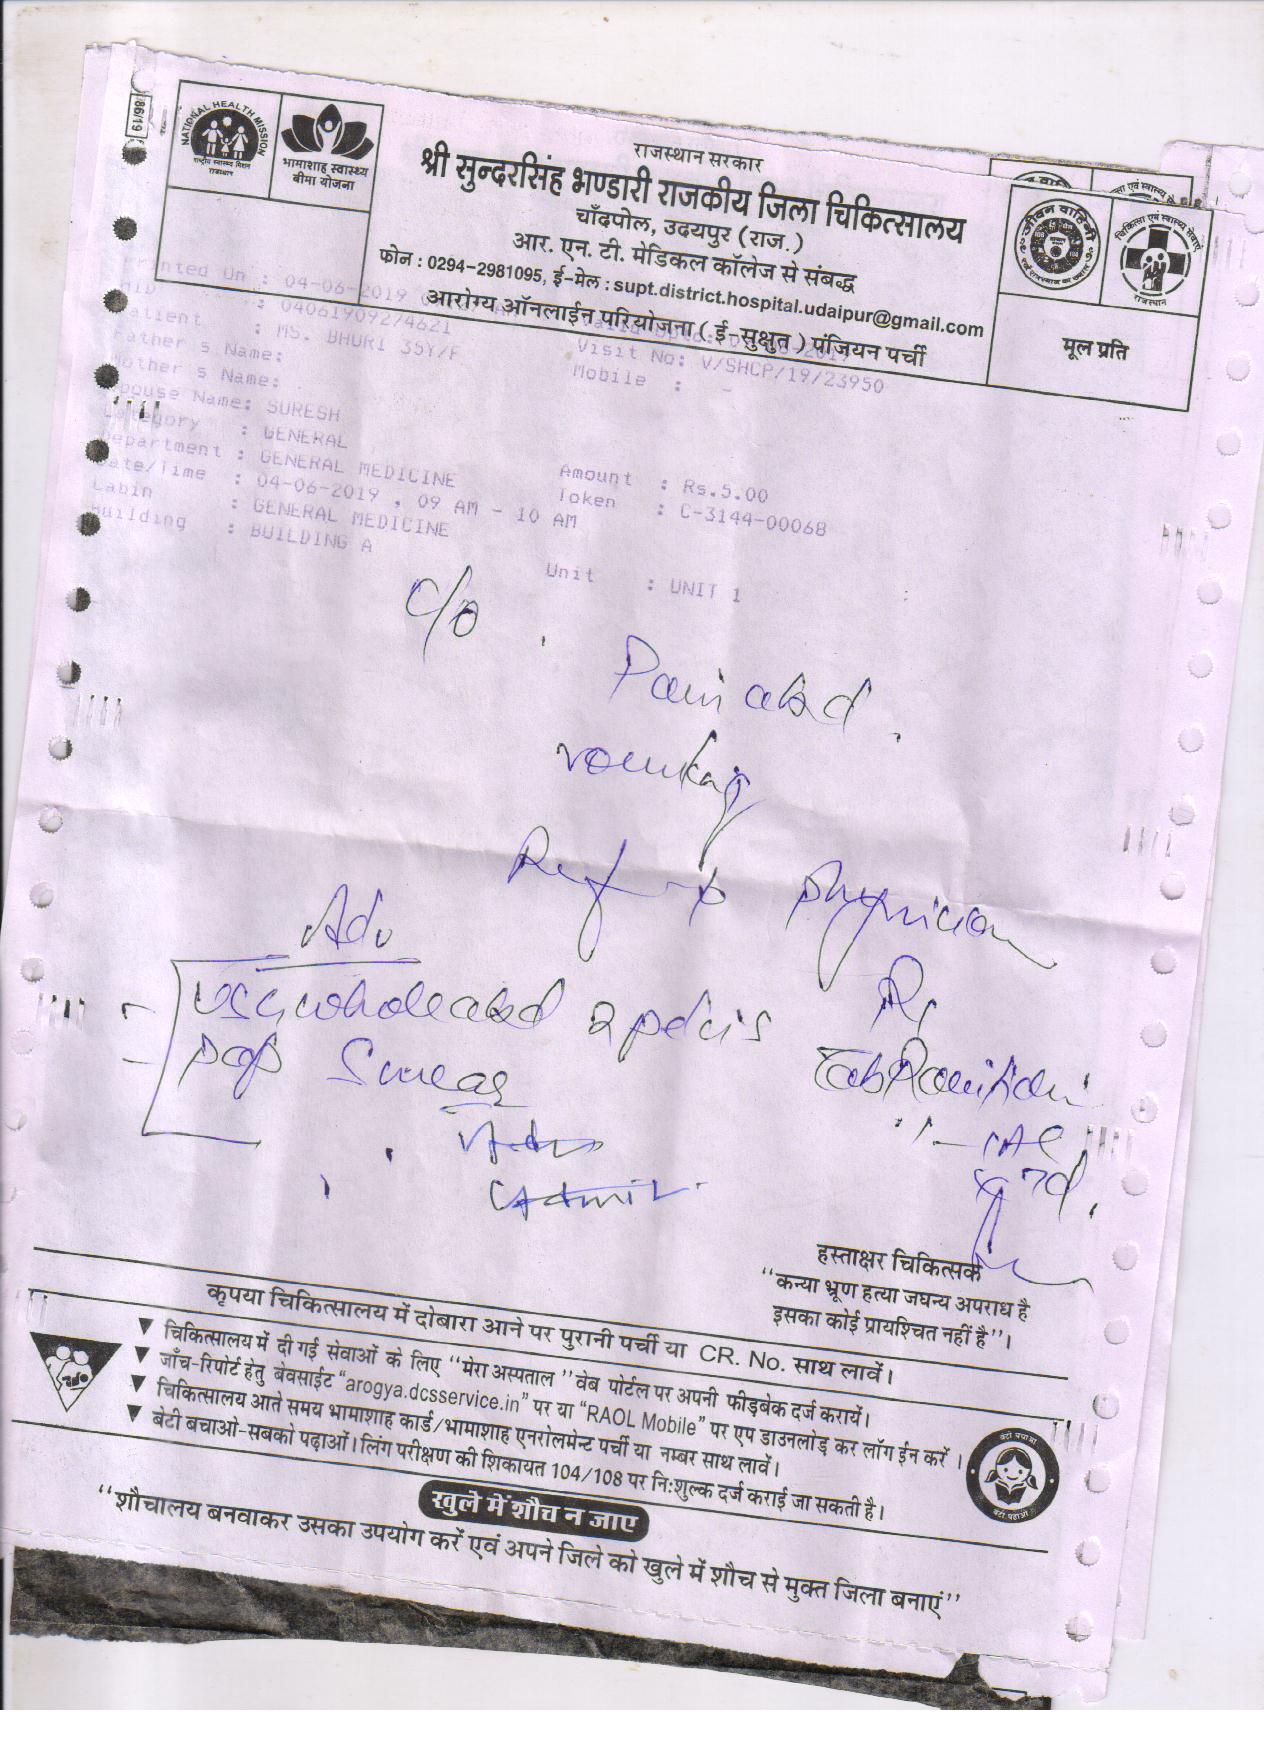 86/19
NATIONAL HEALTH MISSION
राष्ट्रीय स्वास्थ्य मिशन
राजस्थान
भामाशाह स्वास्थ्य
बीमा योजना
राजस्थान सरकार
श्री सुन्दरसिंह भण्डारी राजकीय जिला चिकित्सालय
चाँदपोल, उदयपुर (राज.)
आर. एन. टी. मेडिकल कॉलेज से संबद्ध
फोन : 0294-2981095, ई-मेल : supt.district.hospital.udaipur@gmail.com
आरोग्य ऑनलाईन परियोजना ( ई-सुश्रुत ) पंजियन पर्ची
जीवन वाहिनी
चिकित्सा एवं स्वास्थ्य सेवाएं
राजस्थान
मूल प्रति
Printed On : 04-06-2019
: 04061909274621
Patient : MS. BHURI 35Y/F
Visit No: V/SHCP/19/23950
Father s Name:
Mobile : -
Mother s Name:
Spouse Name: SURESH
Category : GENERAL
Department : GENERAL MEDICINE
Amount : Rs.5.00
Date/Time : 04-06-2019 , 09 AM - 10 AM
Token : C-3144-00068
Cabin : GENERAL MEDICINE
Building : BUILDING A
Unit : UNIT 1
c/o
Pain abd.
vomiting
Ref to physician
Adv
USG whole abd & pelvis
Pap Smear
Rx
Tab Ranitidin
Adv
Admit
हस्ताक्षर चिकित्सक
"कन्या भ्रूण हत्या जघन्य अपराध है
इसका कोई प्रायश्चित नहीं है"।
कृपया चिकित्सालय में दोबारा आने पर पुरानी पर्ची या CR. No. साथ लावें।
▼ चिकित्सालय में दी गई सेवाओं के लिए "मेरा अस्पताल" वेब पोर्टल पर अपनी फीड़बेक दर्ज करायें।
▼ जाँच-रिपोर्ट हेतु बेवसाईट "arogya.dcsservice.in" पर या "RAOL Mobile" पर एप डाउनलोड़ कर लॉग ईन करें ।
▼ चिकित्सालय आते समय भामाशाह कार्ड/भामाशाह एनरोलमेन्ट पर्ची या नम्बर साथ लावें।
▼ बेटी बचाओ-सबको पढ़ाओं। लिंग परीक्षण की शिकायत 104/108 पर निःशुल्क दर्ज कराई जा सकती है।
खुले में शौच न जाए
"शौचालय बनवाकर उसका उपयोग करें एवं अपने जिले को खुले में शौच से मुक्त जिला बनाएं"